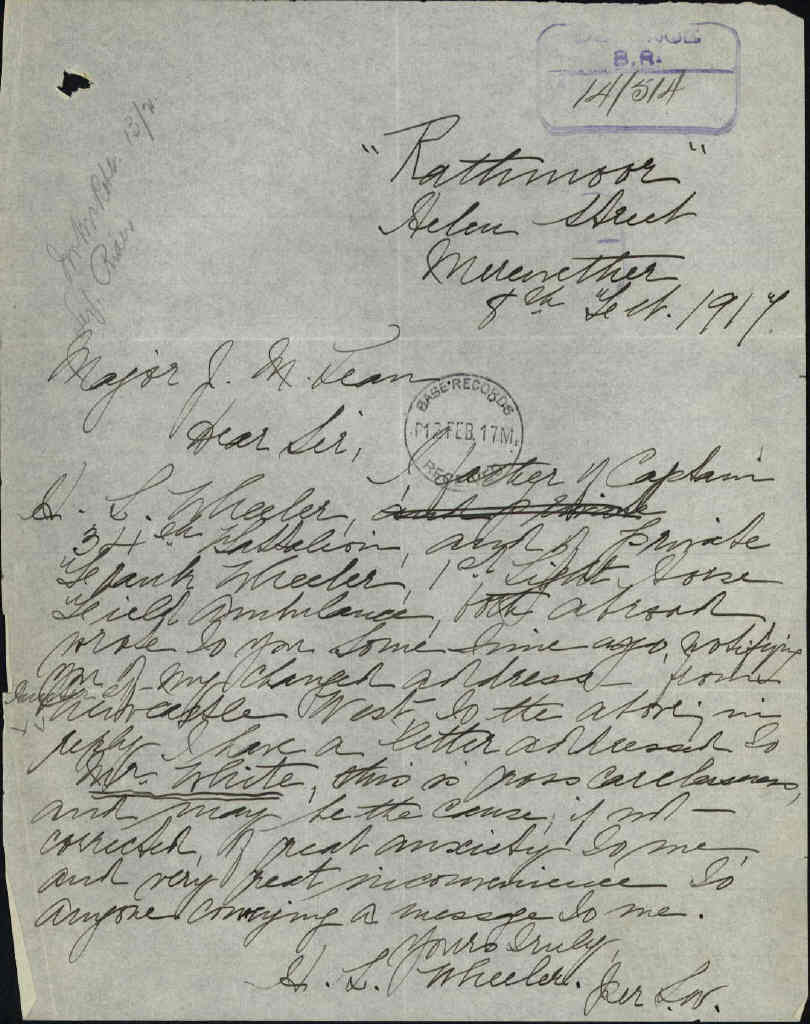 B.R.
14/514
"Rathmoor"
Helen Street
Merewether
8th Feb. 1917.
13/2
Major J. M. Lean
BASE RECORDS
P.M. 12 FEB. 17
Dear Sir,
I, father of Captain
H. L. Wheeler, and private
34th Battalion, and of private
Frank Wheeler, 1st Light Horse
Field Ambulance, both abroad,
wrote to you some time ago, notifying
you of my changed address from
Newcastle West, to the above; in
reply I have a letter addressed to
Mr. White, this is gross carelessness,
and may be the cause, if not
corrected, of great anxiety to me,
and very great inconvenience to
anyone conveying a message to me.
Yours truly,
H. L. Wheeler.
per L.W.